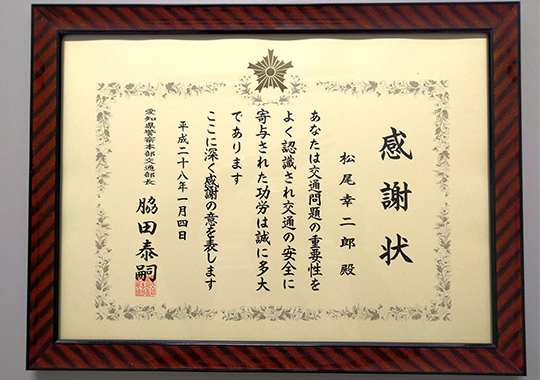 感謝状
松尾幸二郎 殿
あなたは交通問題の重要性を
よく認識され交通の安全に
寄与された功労は誠に多大
であります
ここに深く感謝の意を表します
平成二十八年一月四日
愛知県警察本部交通部長
脇田泰嗣